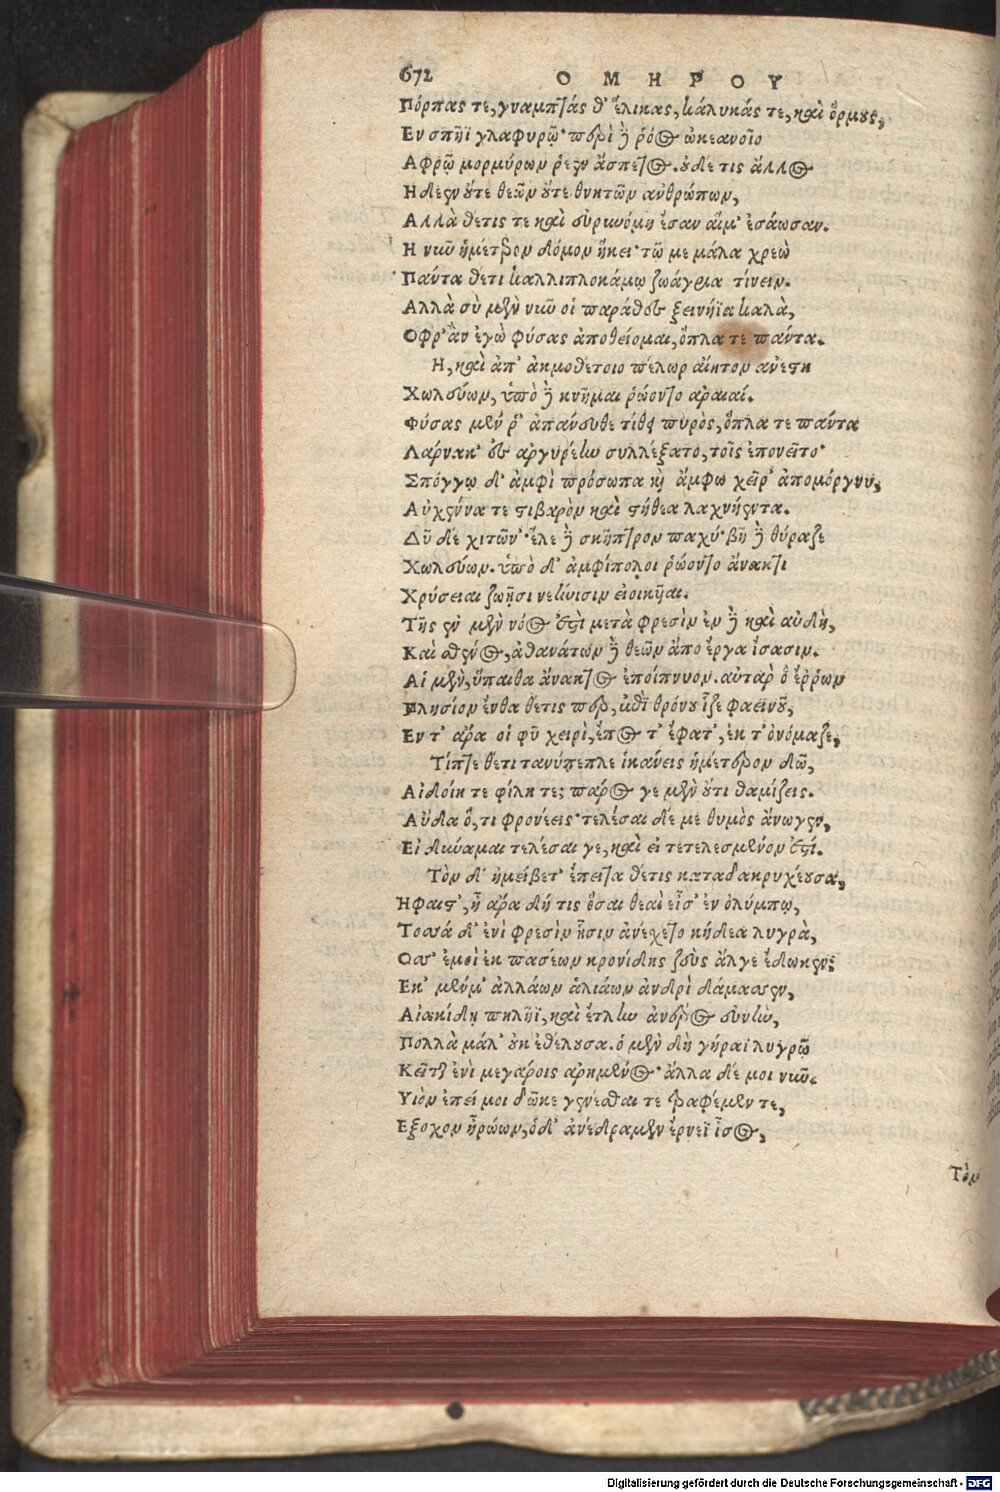 672 ΟΜΗΡΟΥ
Πόρπας τε, γναμπτάς θ' ἕλικας, κάλυκάς τε, καὶ ὅρμους,
Εν σπῆϊ γλαφυρῷ· περὶ δὲ ῥόος ὠκεανοῖο
Αφρῷ μορμύρων ῥέεν ἄσπετος. οὐδέ τις ἄλλος
Ηδεεν οὔτε θεῶν οὔτε θνητῶν ἀνθρώπων,
Αλλὰ θέτις τε καὶ εὐρυνόμη ἔσαν αἵμ' ἐσάωσαν.
Η νῦν ἡμέτερον δόμον ἥκει· τῶ με μάλα χρεὼ
Πάντα θέτι καλλιπλοκάμῳ ζωάγρια τίνειν.
Αλλὰ σὺ μὲν νῦν οἱ παράθες ξεινήϊα καλὰ,
Οφρ' ἂν ἐγὼ φύσας ἀποθείομαι, ὅπλα τε πάντα.
Η, καὶ ἀπ' ἀκμοθέτοιο πέλωρ αἴητον ἀνέστη
Χωλεύων, ὑπὸ δὲ κνῆμαι ῥώοντο ἀραιαί.
Φύσας μέν ῥ' ἀπάνευθε τίθει πυρὸς, ὅπλα τε πάντα
Λάρνακ' ἐς ἀργυρέην συλλέξατο, τοῖς ἐπονεῖτο·
Σπόγγῳ δ' ἀμφὶ πρόσωπα καὶ ἄμφω χεῖρ' ἀπομόργνυ,
Αὐχένα τε στιβαρὸν καὶ στήθεα λαχνήεντα.
Δῦ δὲ χιτῶν'· ἕλε δὲ σκῆπτρον παχύ· βῆ δὲ θύραζε
Χωλεύων. ὑπὸ δ' ἀμφίπολοι ῥώοντο ἄνακτι
Χρύσειαι ζωῇσι νεήνισιν εἰοικῆαι.
Τῆς ἐν μὲν νόος ἐστὶ μετὰ φρεσὶν ἐν δὲ καὶ αὐδὴ,
Καὶ σθένος, ἀθανάτων δὲ θεῶν ἄπο ἔργα ἴσασιν.
Αἱ μὲν, ὕπαιθα ἄνακτος ἐποίπνυον. αὐτὰρ ὃ ἔρρων
Πλησίον ἔνθα θέτις περ, ἐπὶ θρόνου ἷζε φαεινοῦ,
Εν τ' ἄρα οἱ φῦ χειρὶ, ἔπος τ' ἔφατ', ἐκ τ' ὀνόμαζε,
Τίπτε θέτι τανύπεπλε ἱκάνεις ἡμέτερον δῶ,
Αἰδοίη τε φίλη τε; πάρος γε μὲν οὔτι θαμίζεις.
Αὔδα ὅ, τι φρονέεις· τελέσαι δέ με θυμὸς ἄνωγεν,
Εἰ δύναμαι τελέσαι γε, καὶ εἰ τετελεσμένον ἐστί.
Τὸν δ' ἠμείβετ' ἔπειτα θέτις καταδακρυχέουσα,
Ηφαιστ', ἦ ἄρα δή τις ὅσαι θεαὶ εἰσ' ἐν ὀλύμπῳ,
Τοσσά δ' ἐνὶ φρεσὶν ᾗσιν ἀνέχετο κήδεα λυγρὰ,
Οσσ' ἐμοὶ ἐκ πασέων κρονίδης ζεὺς ἄλγε ἔδωκεν;
Εκ' μέν μ' ἀλλάων ἁλιάων ἀνδρὶ δάμασσεν,
Αἰακίδῃ πηλῆϊ, καὶ ἔτλην ἀνέρος εὐνὴν,
Πολλὰ μάλ' οὐκ ἐθέλουσα. ὁ μὲν δὴ γήραϊ λυγρῷ
Κεῖται ἐνὶ μεγάροις ἀρημένος· ἄλλα δέ μοι νῦν.
Υἱὸν ἐπεί μοι δῶκε γενέσθαι τε τραφέμεν τε,
Εξοχον ἡρώων, ὁ δ' ἀνέδραμεν ἔρνεϊ ἶσος,
Τὸν
Digitalisierung gefördert durch die Deutsche Forschungsgemeinschaft - DFG